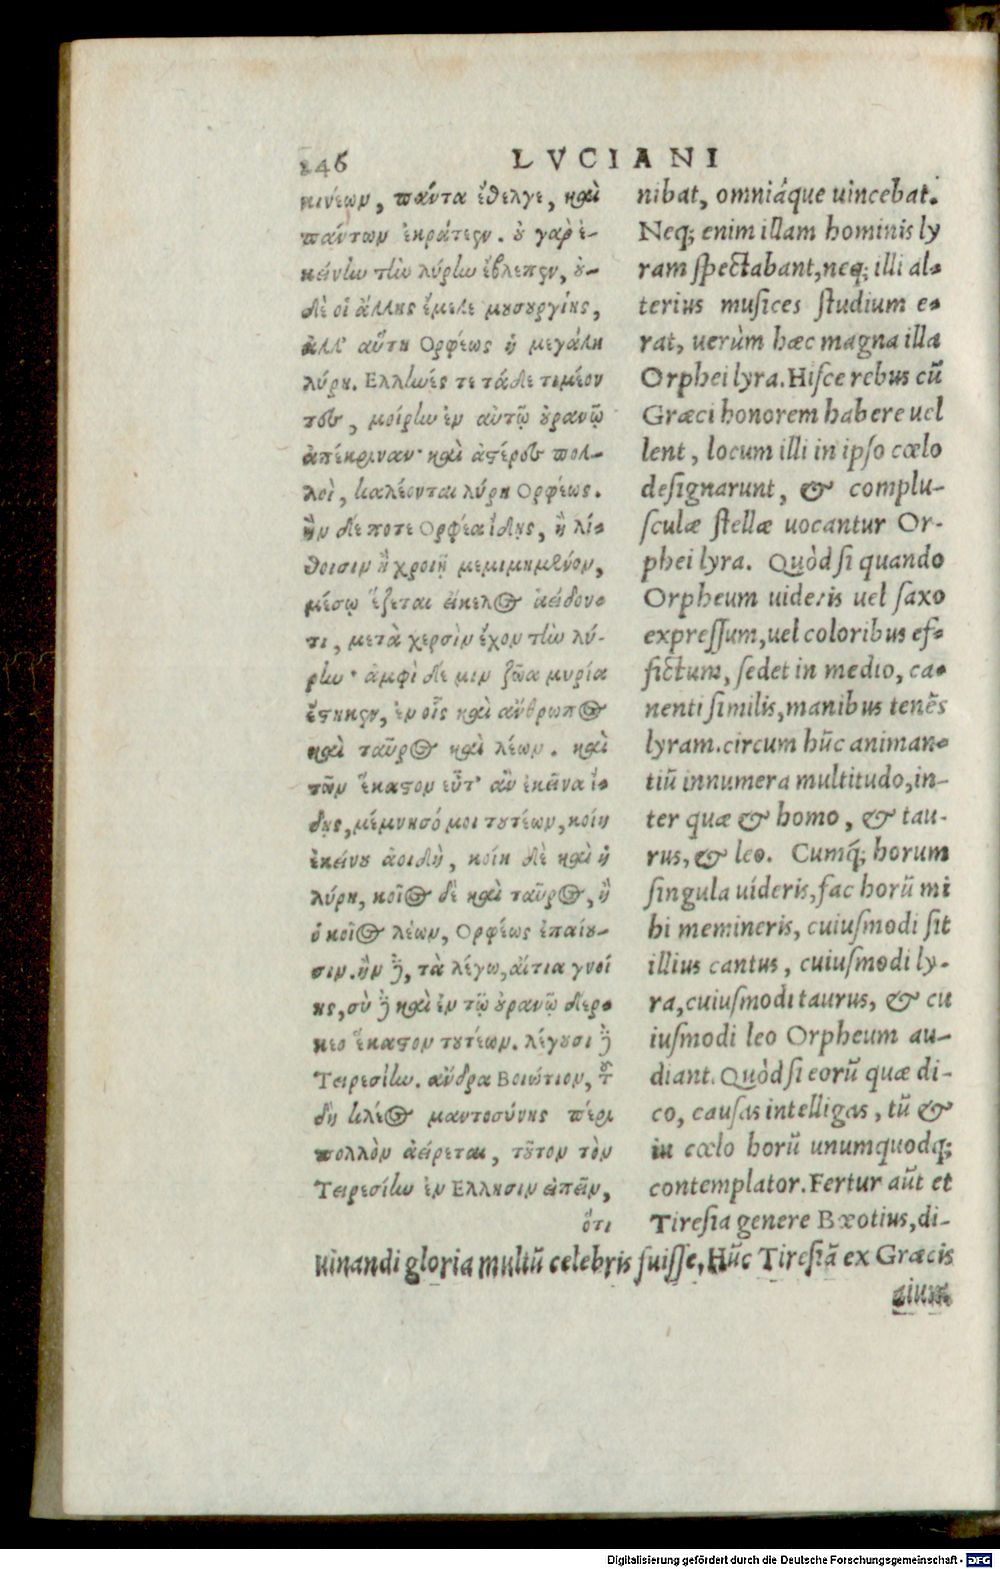 246
LVCIANI
κινέων, πάντα ἔθελγε, καὶ
πάντων ἐκράτεεν. ὀ γαρ ἐ-
κείνην τὴν λύρην ἔβλεπεν, ὀ-
δὲ οἱ ἄλλης ἔμελε μουσουργίης,
ἀλλ' αὕτη Ορφέως ἡ μεγάλη
λύρη. Ελλωές τε τάδε τιμέον
τες, μοίρην ἐν αὐτῷ οὐρανῷ
ἀπέκριναν· καὶ ἀστέρες πολ-
λοὶ, καλέονται λύρη Ορφέως.
ἢν δέ ποτε Ορφέα ἴδης, ἢ λί-
θοισιν ἢ χροιῇ μεμιμημένον,
μέσῳ ἕζεται εἴκελος ἀείδον-
τι, μετὰ χερσὶν ἔχον τὴν λύ-
ρην· ἀμφὶ δέ μιν ζῶα μυρία
ἕστηκεν, ἐν οἷς καὶ ἄνθρωπος
καὶ ταῦρος καὶ λέων. καὶ
τῶν ἕκαστον εὖτ' ἂν ἐκεῖνα ἴ-
δης, μέμνησό μοι τουτέων, κοίη
ἐκείνου ἀοιδὴ, κοίη δὲ καὶ ἡ
λύρη, κοῖος δὲ καὶ ταῦρος, ἢ
ὁ κοῖος λέων, Ορφέως ἐπαίου-
σιν. ἢν δὲ, τὰ λέγω, αἴτια γνοί
ης, σὺ δὲ καὶ ἐν τῷ οὐρανῷ δερ-
κεο ἕκαστον τουτέων. λέγουσι δὲ
Τειρεσίην. ἄνδρα Βοιώτιον, τοῦ
δὴ κλέος μαντοσύνης πέρι
πολλὸν ἀείρεται, τοῦτον τὸν
Τειρεσίην ἐν Ελλησιν εἰπεῖν,
ὅτι
nibat, omniáque uincebat.
Neq; enim illam hominis ly
ram spectabant, neq; illi al-
terius musices studium e-
rat, uerùm hæc magna illa
Orphei lyra. Hisce rebus cū
Græci honorem habere uel
lent, locum illi in ipso cœlo
designarunt, & complu-
sculæ stellæ uocantur Or-
phei lyra. Quòd si quando
Orpheum uideris uel saxo
expressum, uel coloribus ef-
fictum, sedet in medio, ca-
nenti similis, manibus tenēs
lyram. circum hūc animan-
tiū innumera multitudo, in-
ter quæ & homo, & tau-
rus, & leo. Cumq́; horum
singula uideris, fac horū mi
hi memineris, cuiusmodi sit
illius cantus, cuiusmodi ly-
ra, cuiusmodi taurus, & cu
iusmodi leo Orpheum au-
diant. Quòd si eorū quæ di-
co, causas intelligas, tū &
in cœlo horū unumquodq;
contemplator. Fertur aūt et
Tiresia genere Bœotius, di-
uinandi gloria multū celebris fuisse, Hūc Tiresiā ex Græcis
aium
Digitalisierung gefördert durch die Deutsche Forschungsgemeinschaft - DFG